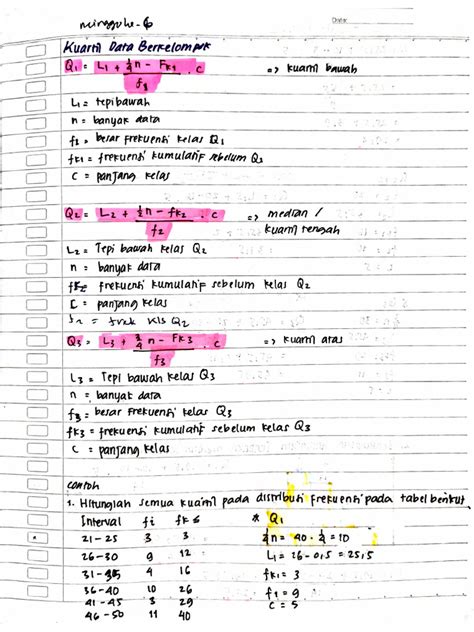 minggu ke-6
Date:
Kuartil Data Berkelompok
Q1 = L1 + ¼n - Fk1 . c => kuartil bawah
f1
L1 = tepi bawah
n = banyak data
f1 = besar frekuensi kelas Q1
fk1 = frekuensi kumulatif sebelum Q1
C = panjang kelas
Q2 = L2 + ½n - fk2 . c => median /
f2 kuartil tengah
L2 = Tepi bawah kelas Q2
n = banyak data
fk2 = frekuensi kumulatif sebelum kelas Q2
C = panjang kelas
f2 = frek kls Q2
Q3 = L3 + ¾n - Fk3 . c => kuartil atas
f3
L3 = Tepi bawah kelas Q3
n = banyak data
f3 = besar frekuensi kelas Q3
fk3 = frekuensi kumulatif sebelum kelas Q3
C = panjang kelas
contoh
1. Hitunglah semua kuartil pada distribusi frekuensi pada tabel berikut
Interval fi fk≤ * Q1
21-25 3 3 ¼n = 40 . ¼ = 10
26-30 9 12 L1 = 26-0,5 = 25,5
31-35 4 16 fk1 = 3
36-40 10 26 f1 = 9
41-45 3 29 C = 5
46-50 11 40